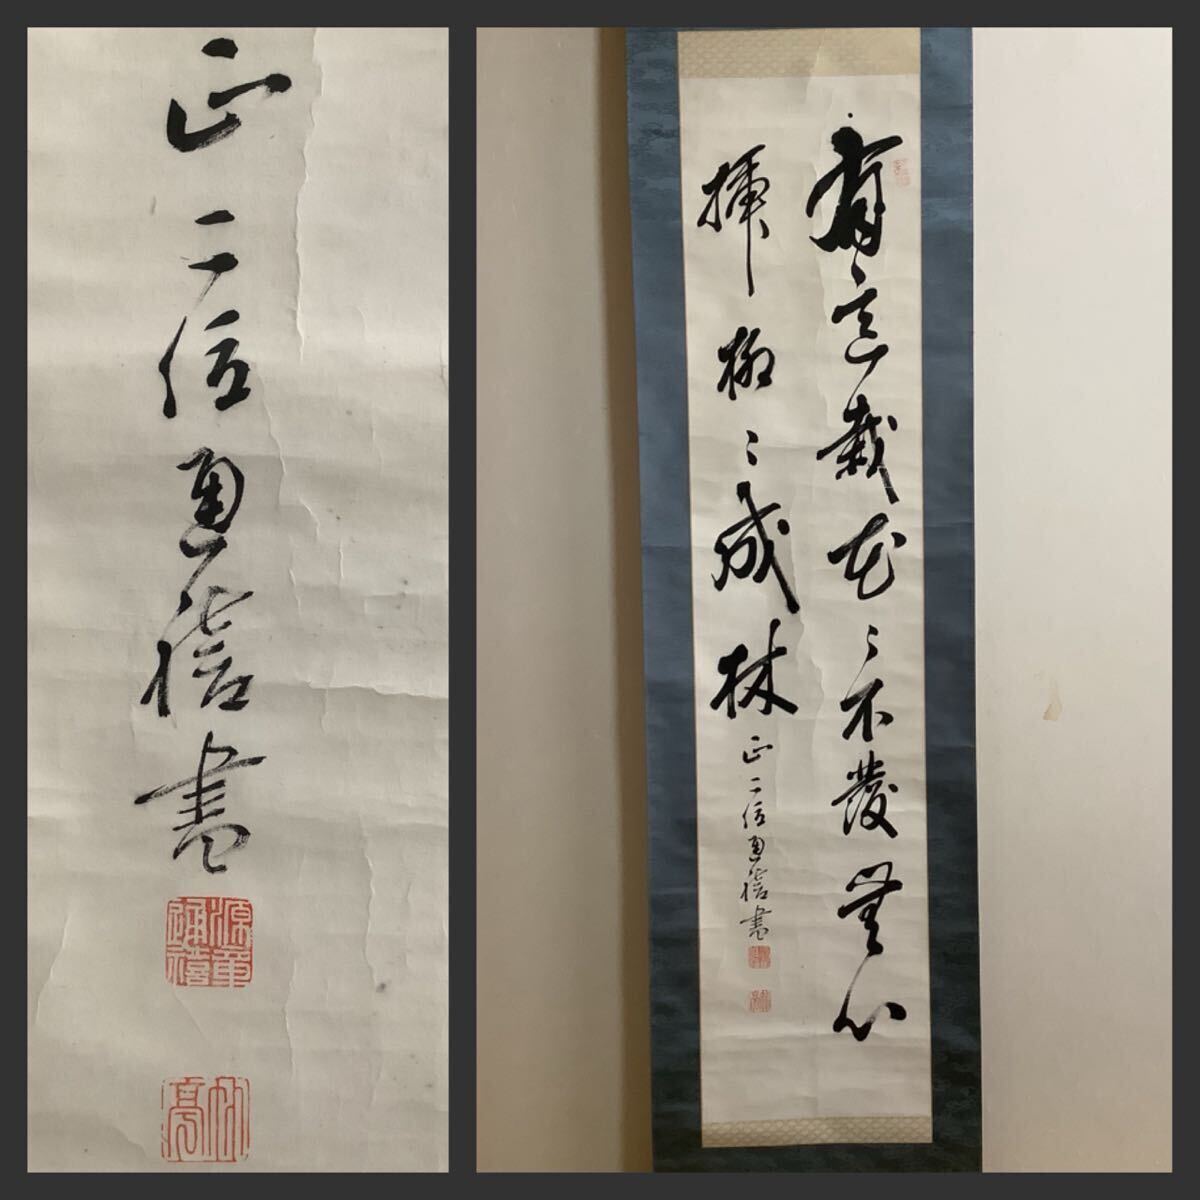 正二位通禧書
竹亭
有意栽花〻不發無心
挿柳〻成林
正二位通禧書